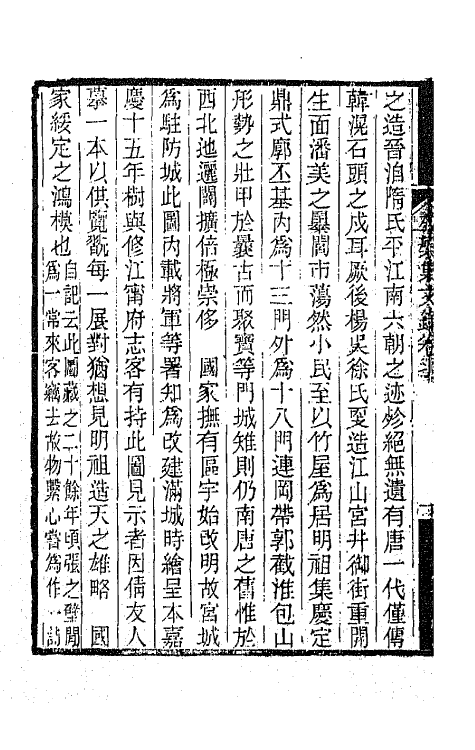 之造晉洎隋氏平江南六朝之迹殄絕無遺有唐一代僅傳
韓滉石頭之戍耳厥後楊吳徐氏更造江山宮井御街重開
生面潘美之爨闤市蕩然小民至以竹屋為居明祖集慶定
鼎式廓丕基內為十三門外為十八門連岡帶郭截淮包山
形勢之壯甲於曩古而聚寶等門城雉則仍南唐之舊惟於
西北迆邐闢擴倍極崇侈 國家撫有區宇始改明故宮城
為駐防城此圖內載將軍等署知為改建滿城時繪呈本嘉
慶十五年樹與修江甯府志客有持此圖見示者因倩友人
摹一本以供覽翫每一展對猶想見明祖造天之雄略 國
家綏定之鴻模也自記云此圖藏之二十餘年頃張之壁間
為一常來客竊去故物繫心嘗為作一詩